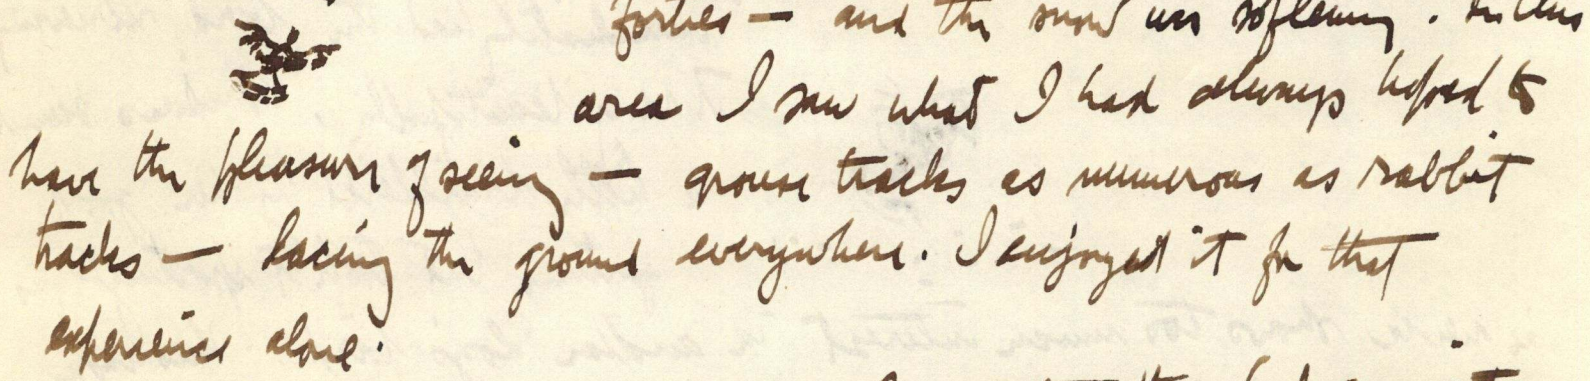 forties — and the snow was softening. In this
area I saw what I had always hoped to
have the pleasure of seeing — grouse tracks as numerous as rabbit
tracks — lacing the ground everywhere. I enjoyed it for that
experience alone.